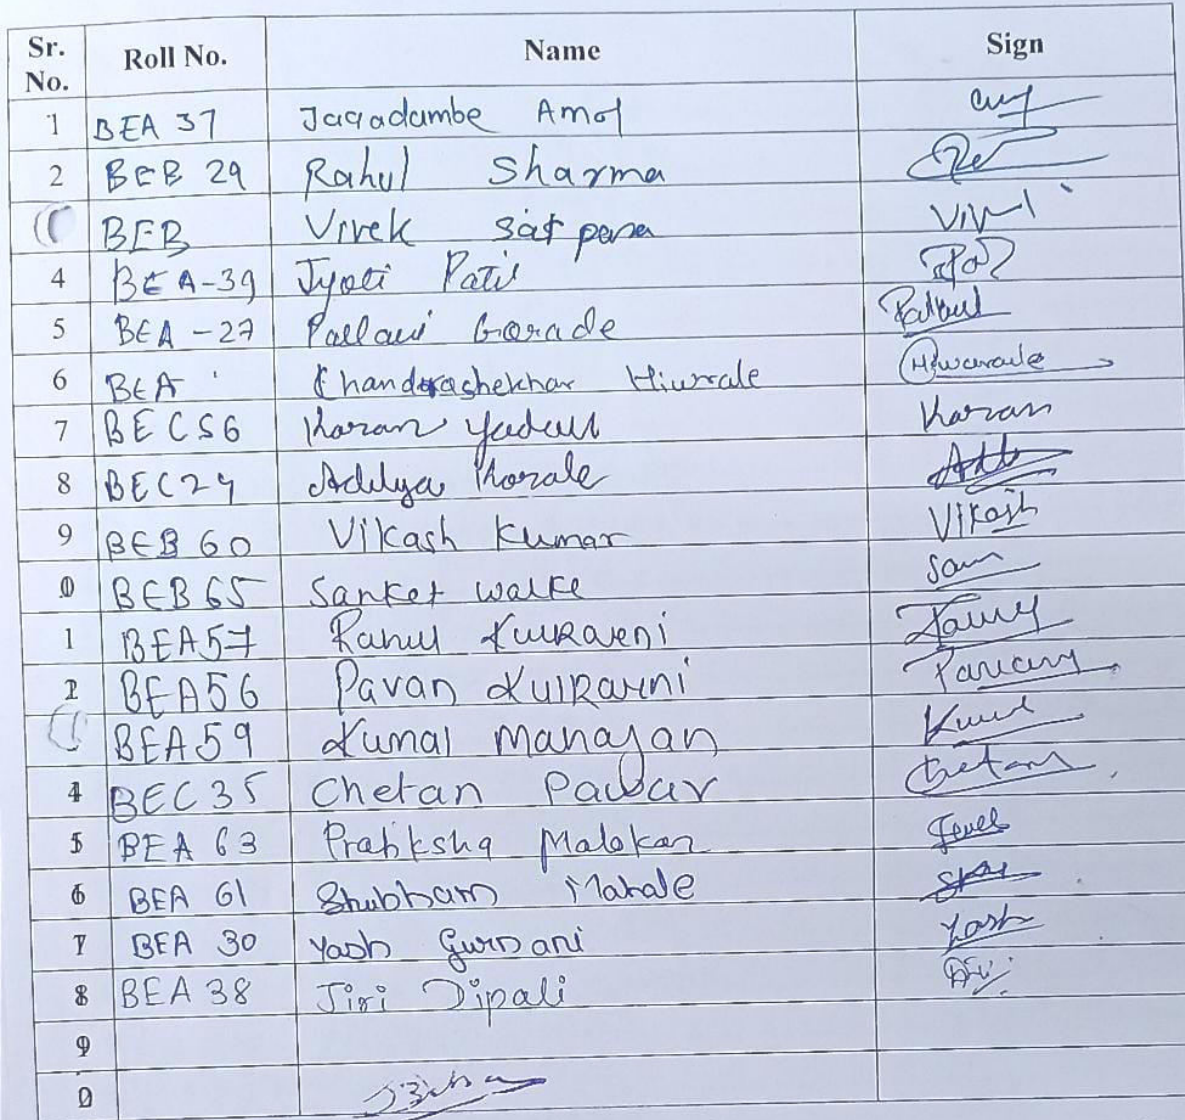 Sr. No. Roll No. Name Sign
1 BEA 37 Jagadambe Amol
2 BEB 29 Rahul Sharma
BEB Vivek Satpena
4 BEA-39 Jyoti Patil
5 BEA-27 Pallavi Gorade Pallavi
6 BEA Chandrashekhar Hiwrale Hiwarale
7 BEC56 Karan Yadav Karan
8 BEC24 Aditya Thorale
9 BEB 60 Vikash Kumar Vikash
0 BEB65 Sanket Walke Sam
1 BEA57 Rahul Kulkarni
2 BEA56 Pavan Kulkarni
BEA59 Kunal Mahajan
4 BEC35 Chetan Pawar Chetan
5 BEA 63 Pratiksha Malokar
6 BEA 61 Shubham Mahale
7 BEA 30 Yash Gurnani Yash
8 BEA 38 Jiri Dipali
9
0